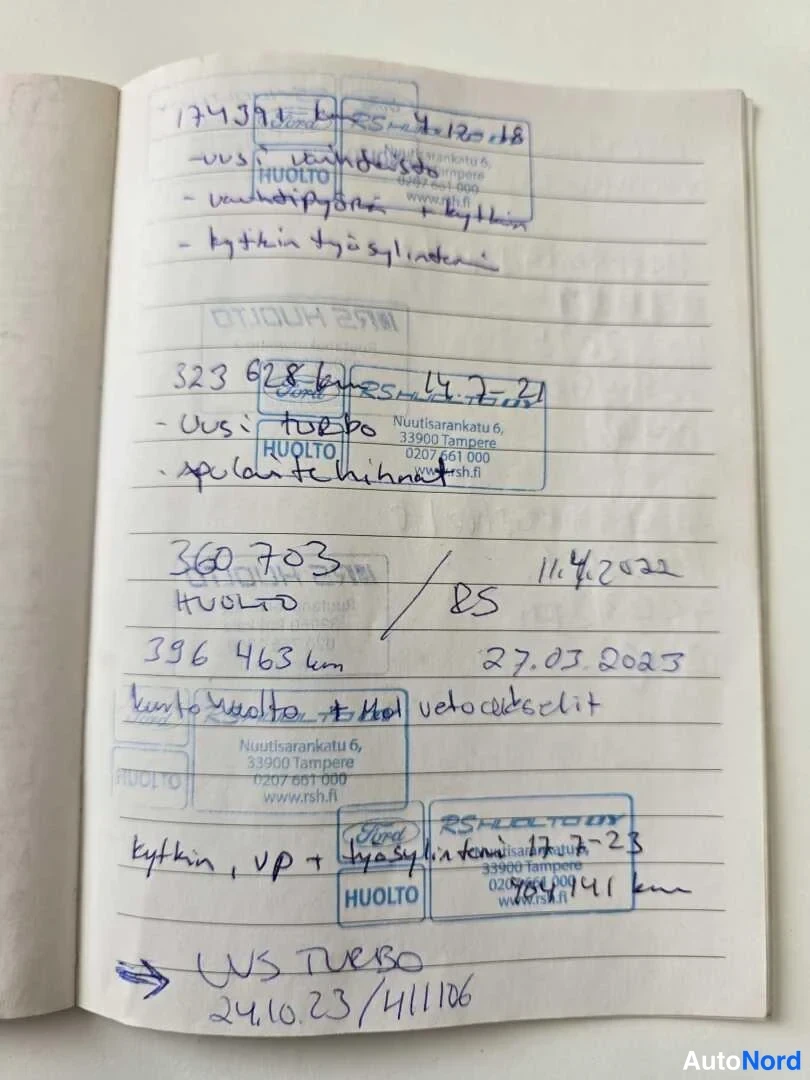 174391 km 4.12.18
Ford RS HUOLTO OY
- uusi vaihteisto
Nuutisarankatu 6,
33900 Tampere
HUOLTO
0207 661 000
www.rsh.fi
- vauhtipyörä + kytkin
- kytkin työsylinteri
RS HUOLTO
323 628 km 14.7-21
Ford RS HUOLTO OY
- Uusi TURBO
Nuutisarankatu 6,
33900 Tampere
HUOLTO
0207 661 000
www.rsh.fi
- apulaitehihnat
360 703 / RS 11.4.2022
RS HUOLTO
HUOLTO
396 463 km 27.03.2023
huolto + vetoakselit
Ford RS HUOLTO OY
Nuutisarankatu 6,
33900 Tampere
HUOLTO
0207 661 000
www.rsh.fi
Ford RS HUOLTO OY
kytkin, VP + työsylinteri 17.7-23
Nuutisarankatu 6,
33900 Tampere
HUOLTO
0207 661 000
www.rsh.fi
404 141 km
UUS TURBO
24.10.23/411106
AutoNord